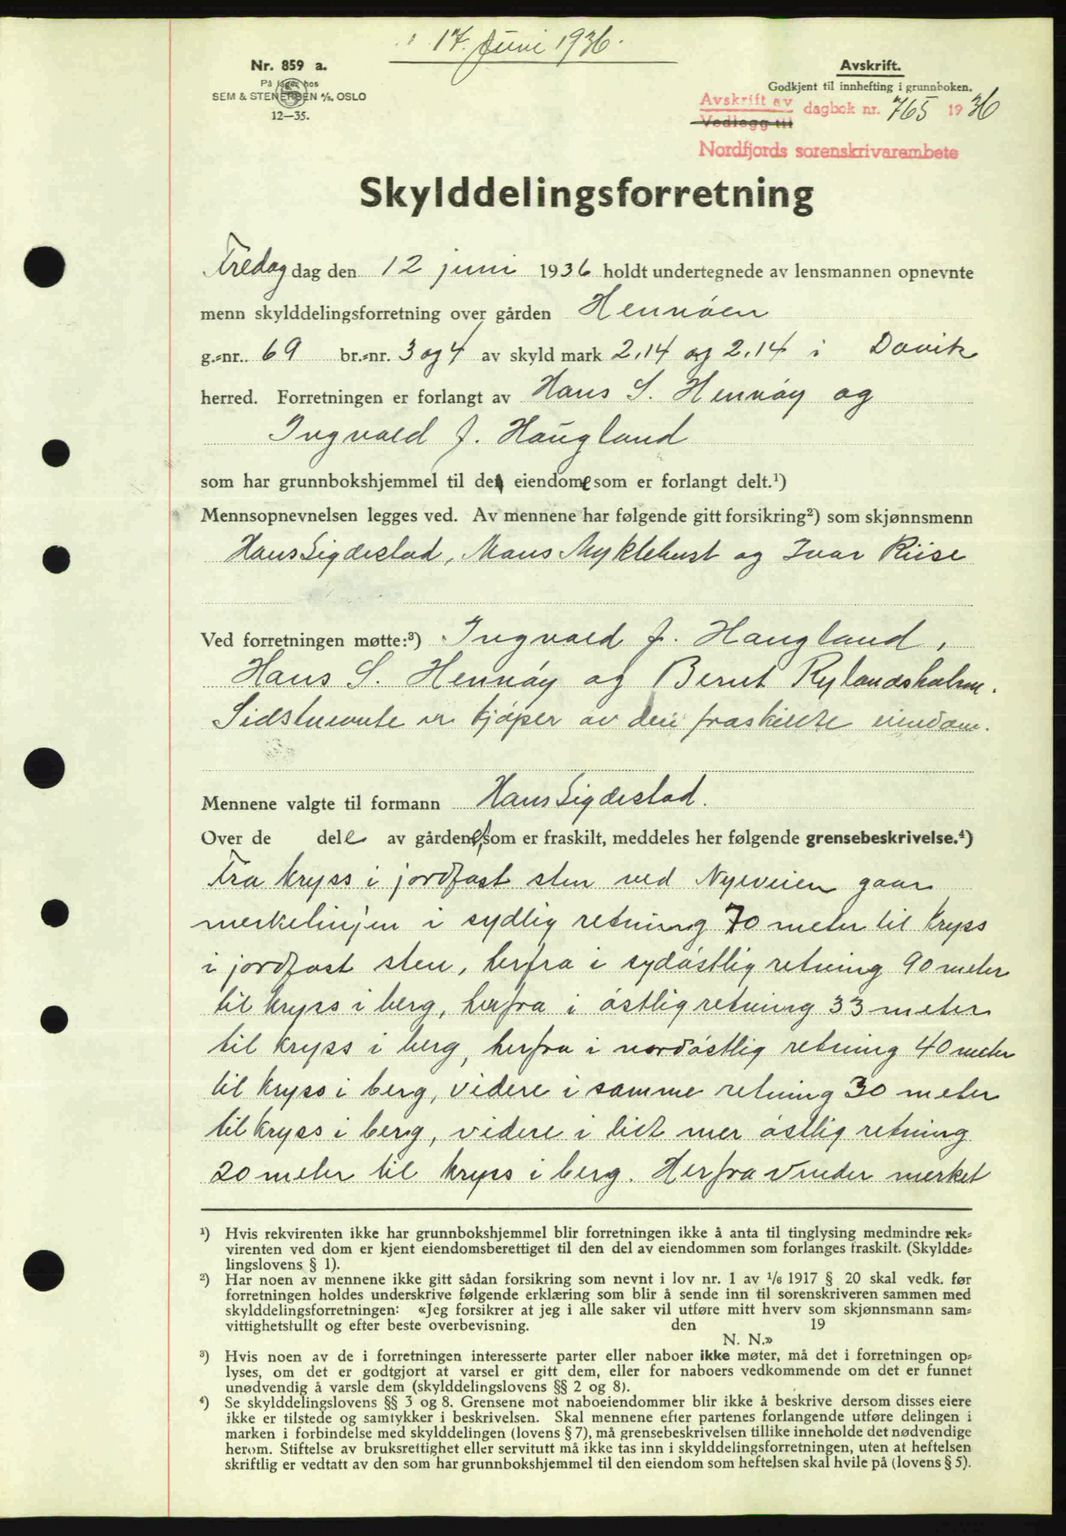 17. Juni 1936.
Nr. 859 a.
På lager hos
SEM & STENERSEN A/S, OSLO
12—35.
Avskrift.
Godkjent til innhefting i grunnboken.
Avskrift av
Vedlegg til
dagbok nr. 765 1936
Nordfjords sorenskrivarembete
Skylddelingsforretning
Fredag dag den 12 juni 1936 holdt undertegnede av lensmannen opnevnte
menn skylddelingsforretning over gården Hennøen
g.=nr. 69 br.=nr. 3 og 4 av skyld mark 2.14 og 2.14 i Davik
herred. Forretningen er forlangt av Hans S. Hennøy og
Ingvald J. Haugland
som har grunnbokshjemmel til de eiendome som er forlangt delt.¹)
Mennsopnevnelsen legges ved. Av mennene har følgende gitt forsikring²) som skjønnsmenn
Hans Sigdestad, Mons Myklebust og Ivar Riise
Ved forretningen møtte:³) Ingvald J. Haugland,
Hans S. Hennøy og Bernt Rylandsholm.
Sidstnevnte er kjøper av den fraskilte eiendom.
Mennene valgte til formann Hans Sigdestad.
Over de dele av gårdene, som er fraskilt, meddeles her følgende grensebeskrivelse.⁴)
Fra kryss i jordfast sten ved Nyeveien gaar
merkelinjen i sydlig retning 70 meter til kryss
i jordfast sten, herfra i sydøstlig retning 90 meter
til kryss i berg, herfra i østlig retning 33 meter
til kryss i berg, herfra i nordøstlig retning 40 meter
til kryss i berg, videre i samme retning 30 meter
til kryss i berg, videre i lidt mer østlig retning
20 meter til kryss i berg. Herfra vinder merket
¹) Hvis rekvirenten ikke har grunnbokshjemmel blir forretningen ikke å anta til tinglysing medmindre rek=
virenten ved dom er kjent eiendomsberettiget til den del av eiendommen som forlanges fraskilt. (Skyldde=
lingslovens § 1).
²) Har noen av mennene ikke gitt sådan forsikring som nevnt i lov nr. 1 av 1/6 1917 § 20 skal vedk. før
forretningen holdes underskrive følgende erklæring som blir å sende inn til sorenskriveren sammen med
skylddelingsforretningen: «Jeg forsikrer at jeg i alle saker vil utføre mitt hverv som skjønnsmann sam=
vittighetsfullt og efter beste overbevisning. den 19
N. N.»
³) Hvis noen av de i forretningen interesserte parter eller naboer ikke møter, må det i forretningen op=
lyses, om det er godtgjort at varsel er gitt dem, eller for naboers vedkommende om det er funnet
unødvendig å varsle dem (skylddelingslovens §§ 2 og 8).
⁴) Se skylddelingslovens §§ 3 og 8. Grensene mot naboeiendommer blir ikke å beskrive dersom disses eiere
ikke er tilstede og samtykker i beskrivelsen. Skal mennene efter partenes forlangende utføre delingen i
marken i forbindelse med skylddelingen (lovens § 7), må grensebeskrivelsen tillike inneholde det nødvendige
herom. Stiftelse av bruksrettighet eller servitutt må ikke tas inn i skylddelingsforretningen, uten at heftelsen
skriftlig er vedtatt av den som har grunnbokshjemmel til den eiendom som heftelsen skal hvile på (lovens § 5).